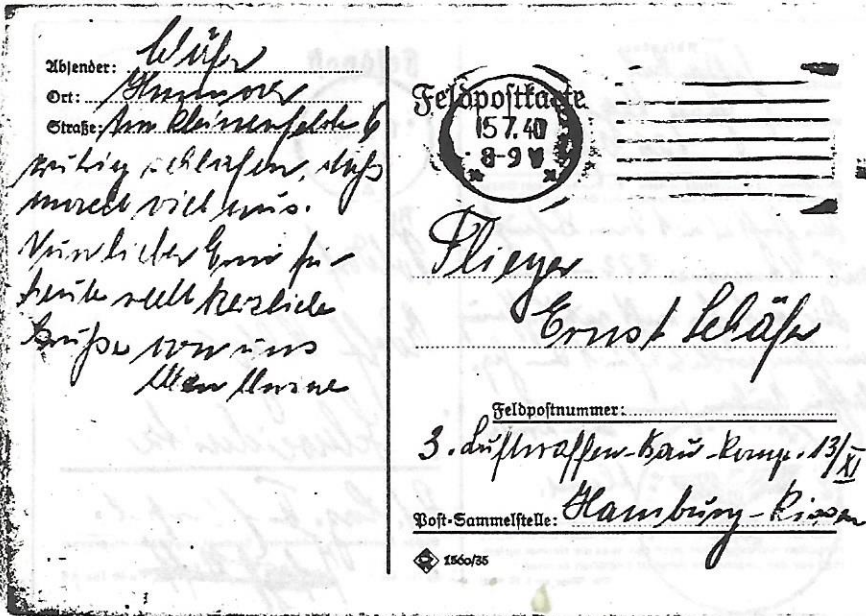 Absender: Schäfer
Ort: Hannover
Straße: Am Kleinenfelde 6
ruhig schlafen, daß
macht viel aus.
Nun lieber Erni für
heute recht herzliche
Grüße von uns
Feldpostkarte
15.7.40
8-9 V
Flieger
Ernst Schäfer
Feldpostnummer:
3. Luftwaffen-Bau-Komp. 13/XI
Post-Sammelstelle: Hamburg-Rissen
1560/35